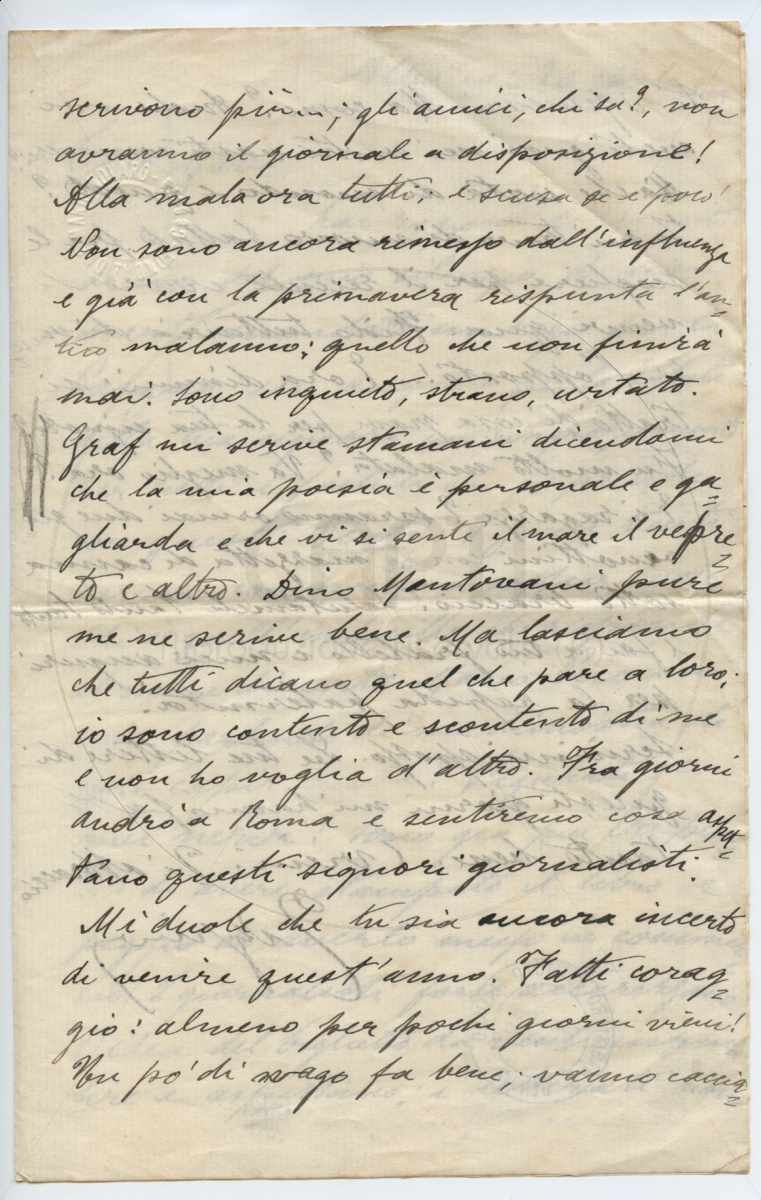 scrivono più...; gli amici, chi sa?, non
avranno il giornale a disposizione!
Alla malaora tutti; e scusa se è poco!
Non sono ancora rimesso dall'influenza
e già con la primavera rispunta l'an=
tico malanno: quello che non finirà
mai. Sono inquieto, strano, urtato.
Graf mi scrive stamani dicendomi
che la mia poesia è personale e ga=
gliarda e che vi si sente il mare il vepre=
to e altro. Dino Mantovani pure
me ne scrive bene. Ma lasciamo
che tutti dicano quel che pare a loro;
io sono contento e scontento di me
e non ho voglia d'altro. Fra giorni
andrò a Roma e sentiremo cosa aspet=
tano questi signori giornalisti.
Mi duole che tu sia ancora incerto
di venire quest'anno. Fatti corag=
gio: almeno per pochi giorni vieni!
Un pò di svago fa bene; vanno caccia=